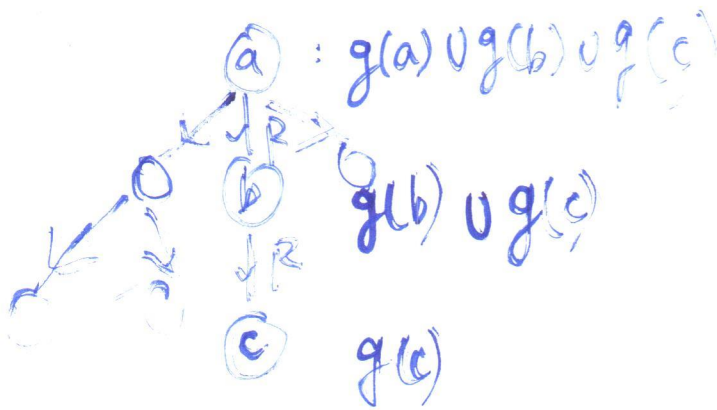 a : g(a) ∪ g(b) ∪ g(c)
R
b g(b) ∪ g(c)
R
c g(c)